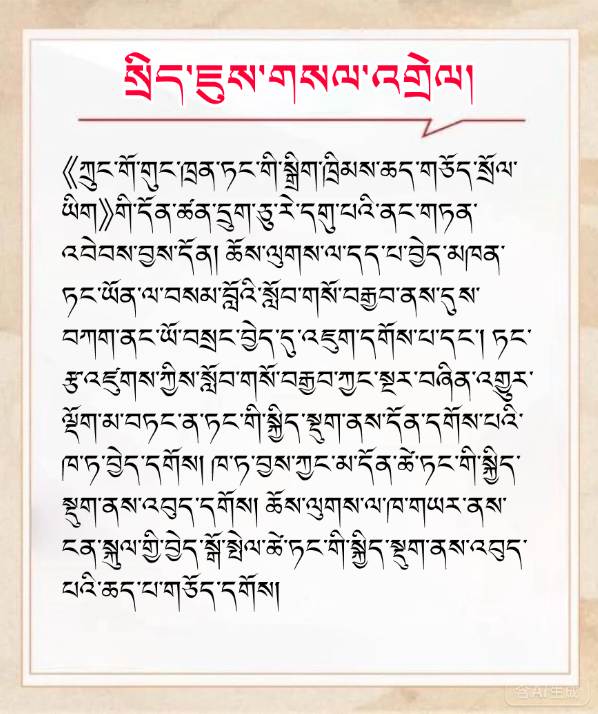 སྲིད་ཇུས་གསལ་འགྲེལ།
《ཀྲུང་གོ་གུང་ཁྲན་ཏང་གི་སྒྲིག་ཁྲིམས་ཆད་གཅོད་སྲོལ་
ཡིག》གི་དོན་ཚན་དྲུག་ཅུ་རེ་དགུ་པའི་ནང་གཏན་
འབེབས་བྱས་དོན། ཆོས་ལུགས་ལ་དད་པ་བྱེད་མཁན་
ཏང་ཡོན་ལ་བསམ་བློའི་སློབ་གསོ་བརྒྱབ་ནས་དུས་
བཀག་ནང་ཡོ་བསྲང་བྱེད་དུ་འཇུག་དགོས་པ་དང་། ཏང་
རྩ་འཛུགས་ཀྱིས་སློབ་གསོ་བརྒྱབ་ཀྱང་སྔར་བཞིན་འགྱུར་
ལྡོག་མ་བཏང་ན་ཏང་གི་སྐྱིད་སྡུག་ནས་དོན་དགོས་པའི་
ཁ་ཏ་བྱེད་དགོས། ཁ་ཏ་བྱས་ཀྱང་མ་དོན་ཚེ་ཏང་གི་སྐྱིད་
སྡུག་ནས་འབུད་དགོས། ཆོས་ལུགས་ལ་ཁ་གཡར་ནས་
ངན་སྐུལ་གྱི་བྱེད་སྒོ་སྤེལ་ཚེ་ཏང་གི་སྐྱིད་སྡུག་ནས་འབུད་
པའི་ཆད་པ་གཅོད་དགོས།
含AI生成